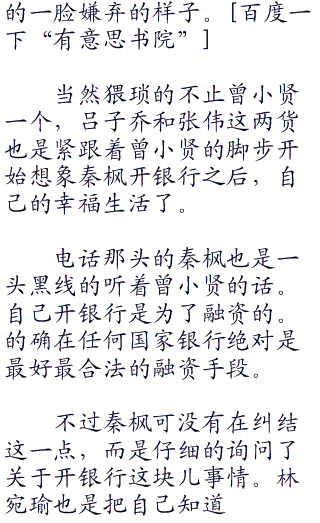 的一脸嫌弃的样子。[百度一
下“有意思书院”]
当然猥琐的不止曾小贤
一个，吕子乔和张伟这两货
也是紧跟着曾小贤的脚步开
始想象秦枫开银行之后，自
己的幸福生活了。
电话那头的秦枫也是一
头黑线的听着曾小贤的话。
自己开银行是为了融资的。
的确在任何国家银行绝对是
最好最合法的融资手段。
不过秦枫可没有在纠结
这一点，而是仔细的询问了
关于开银行这块儿事情。林
宛瑜也是把自己知道